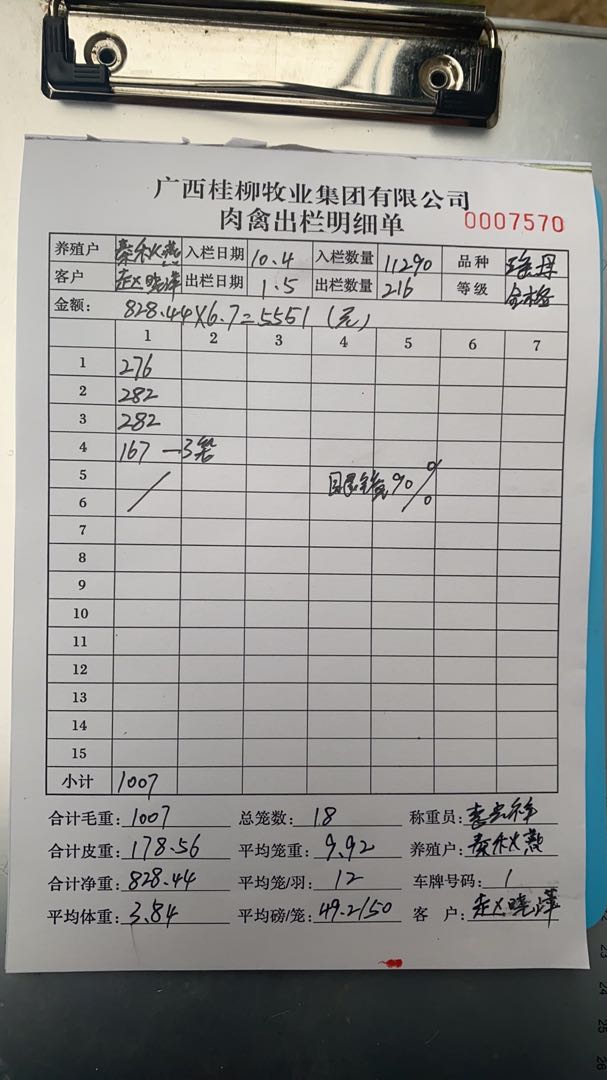 广西桂柳牧业集团有限公司
肉禽出栏明细单 0007570
养殖户 入栏日期 10.4 入栏数量 11290 品种
客户 赵晓萍 出栏日期 1.5 出栏数量 216 等级 合格
金额: 828.44×6.7=5551 (元)
1 2 3 4 5 6 7
1 276
2 282
3 282
4 167 —3笼
5
6 90%
7
8
9
10
11
12
13
14
15
小计 1007
合计毛重: 1007 总笼数: 18 称重员:
合计皮重: 178.56 平均笼重: 9.92 养殖户:
合计净重: 828.44 平均笼/羽: 12 车牌号码: 1
平均体重: 3.84 平均磅/笼: 49.2/50 客 户: 赵晓萍